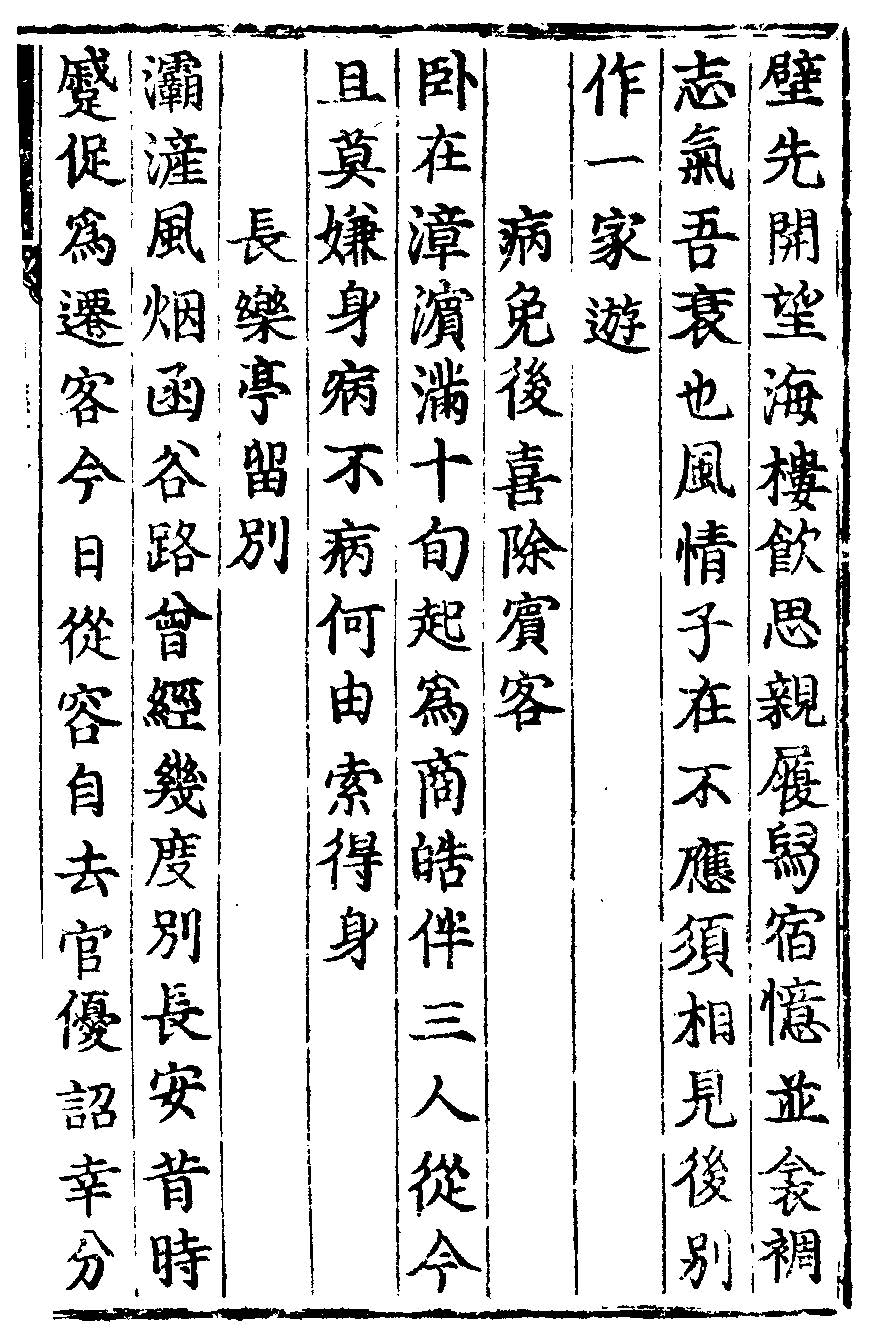 壁先開望海樓飲思親履舄宿憶並衾裯
志氣吾衰也風情子在不應須相見後別
作一家遊
病免後喜除賔客
卧在漳濵滿十旬起爲商皓伴三人從今
且莫嫌身病不病何由索得身
長樂亭留別
灞滻風烟函谷路曾經幾度別長安昔時
蹙促爲遷客今日從容自去官優詔幸分